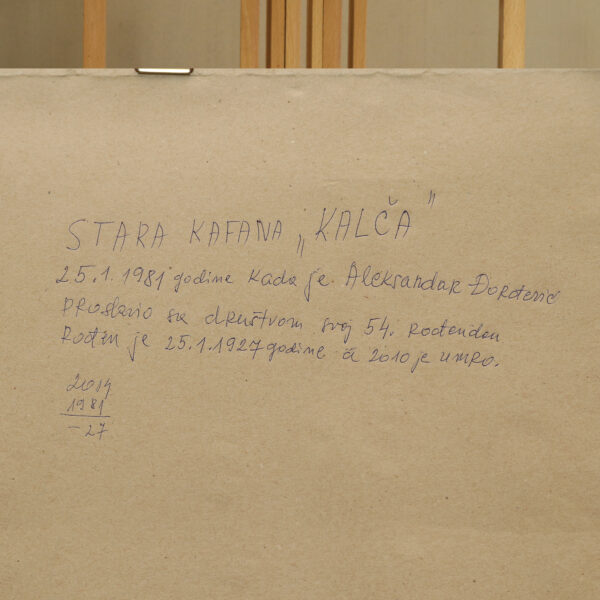 STARA KAFANA „KALČA"
25.1.1981 godine kada je Aleksandar Đorđević
proslavio sa društvom svoj 54. rođendan
Rođen je 25.1.1927 godine a 2010 je umro.
2014
1981
- 27